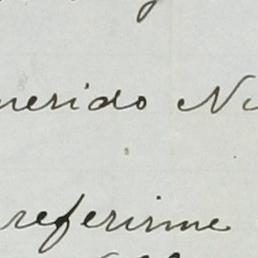 uerido Ni
referirme